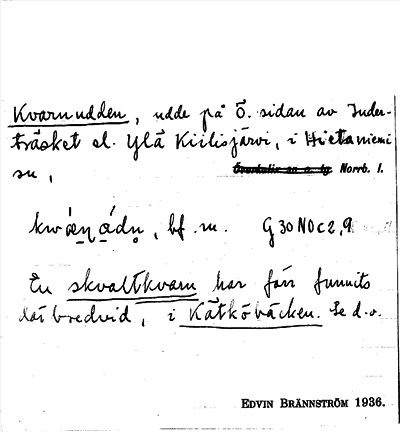 Kvarnudden, udde på Ö. sidan av Inder-
träsket el. Ylä Kiilisjärvi, i Hietaniemi
sn,
Överkalix sn o. tg Norrb. l.
bf. m. G30NOc2,9
En skvaltkvarn har förr funnits
där bredvid, i Kätköbäcken. Se d.o.
EDVIN BRÄNNSTRÖM 1936.